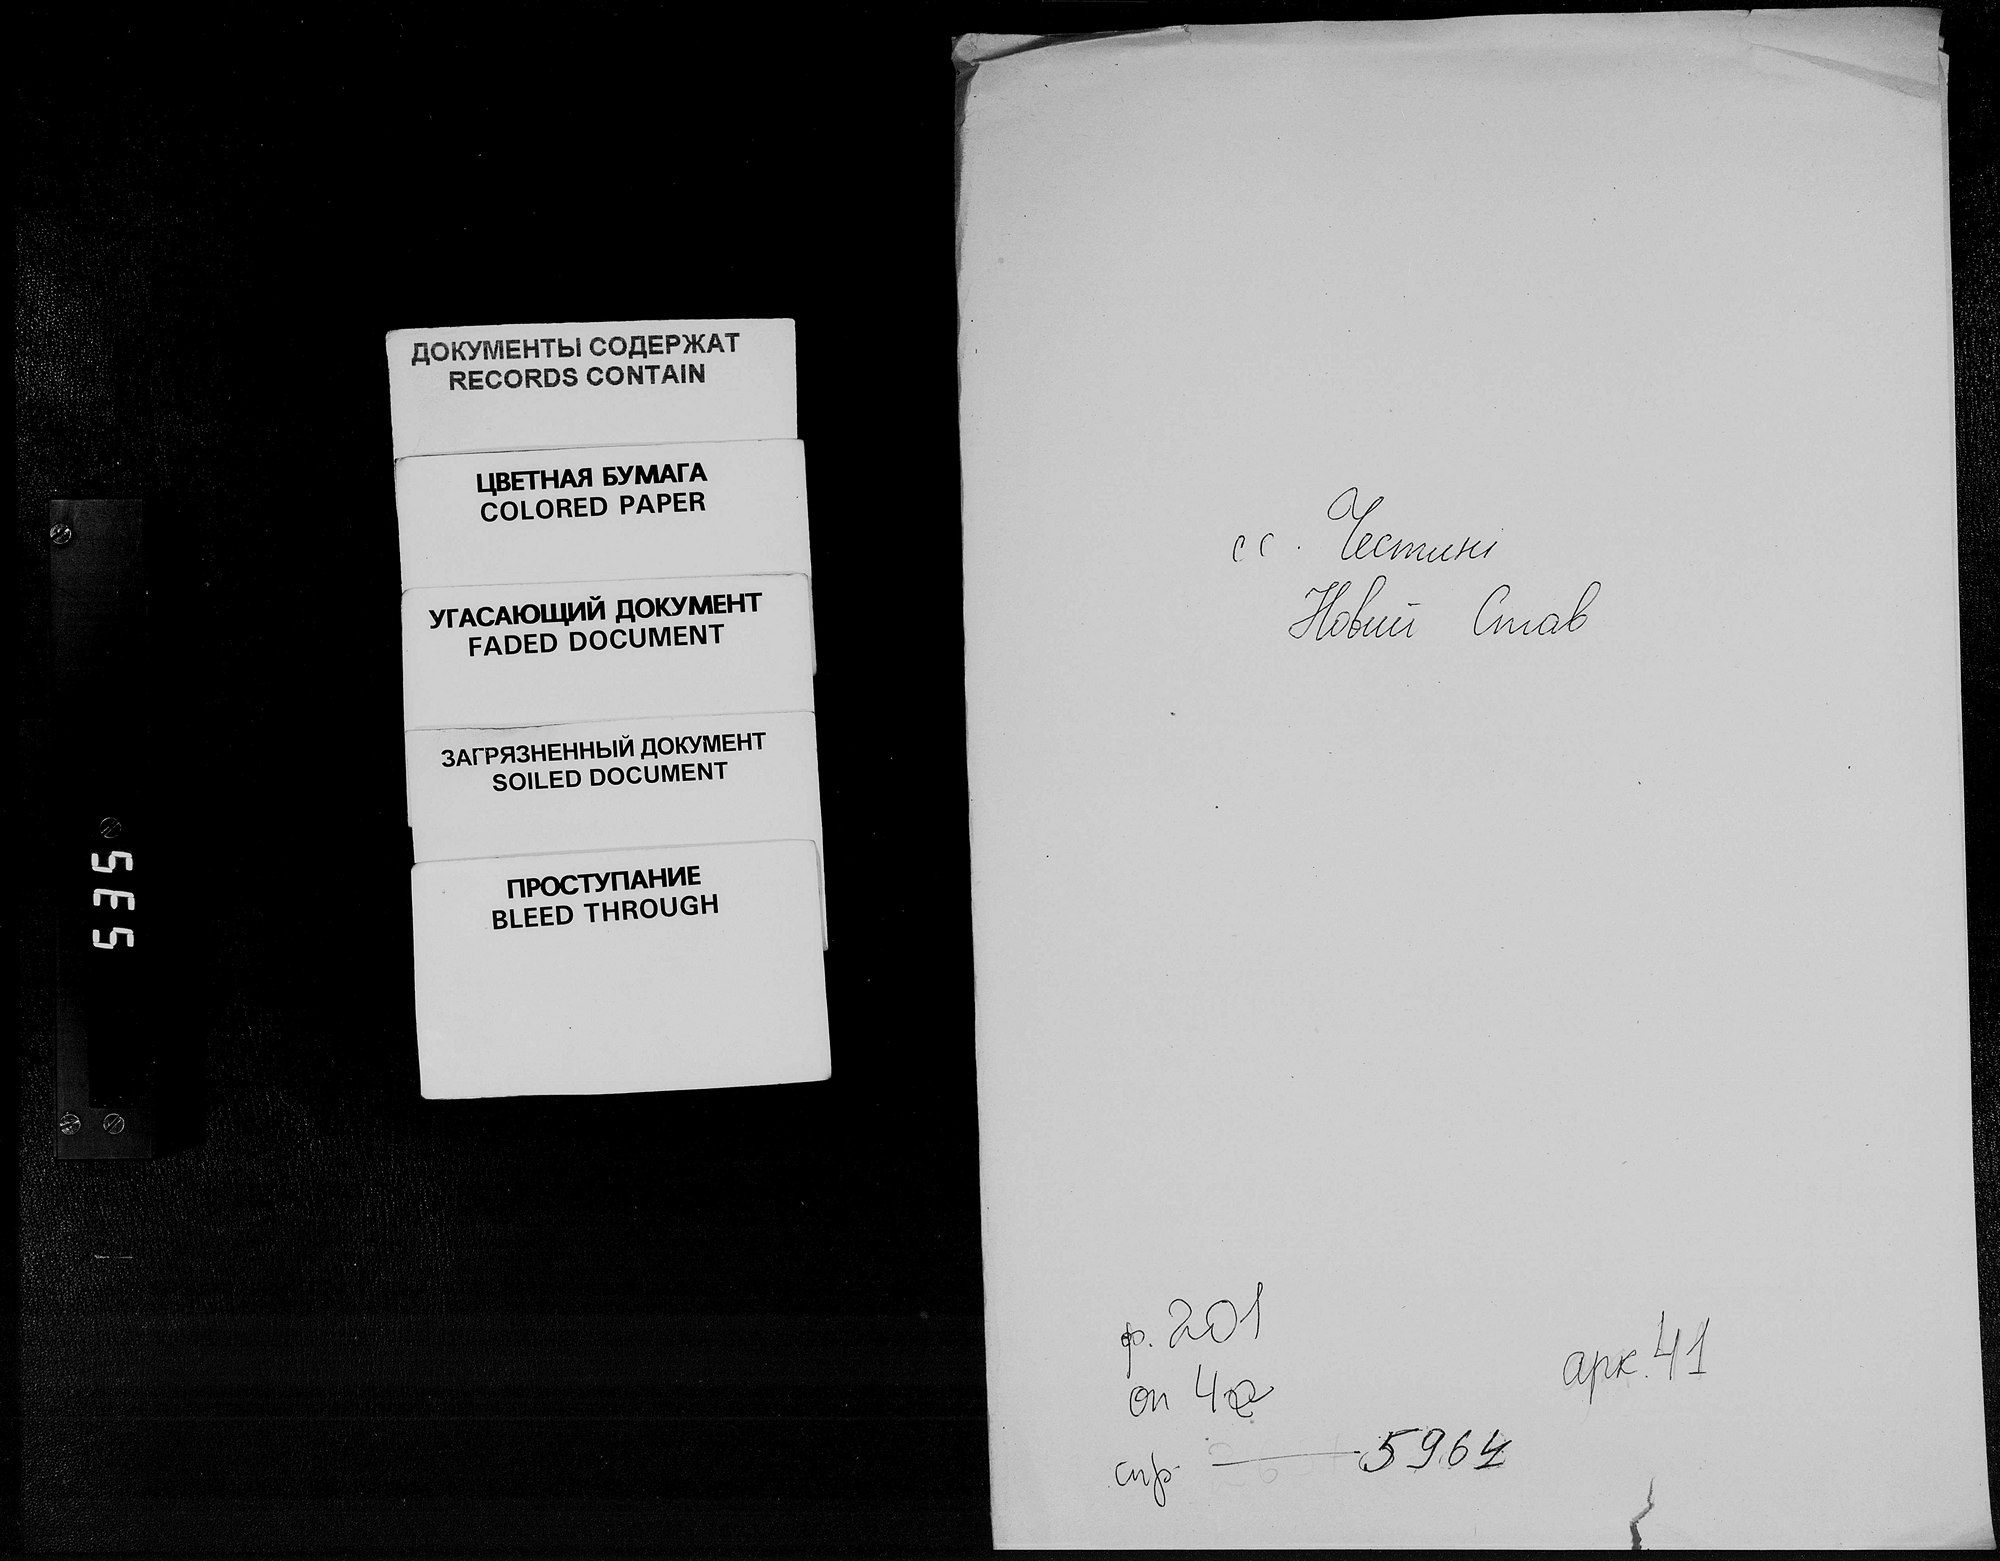 ДОКУМЕНТЫ СОДЕРЖАТ
RECORDS CONTAIN
ЦВЕТНАЯ БУМАГА
COLORED PAPER
УГАСАЮЩИЙ ДОКУМЕНТ
FADED DOCUMENT
ЗАГРЯЗНЕННЫЙ ДОКУМЕНТ
SOILED DOCUMENT
ПРОСТУПАНИЕ
BLEED THROUGH
535
сс. Честині
Новий Став
ф. 201
оп 4а
арк. 41
спр. 5964